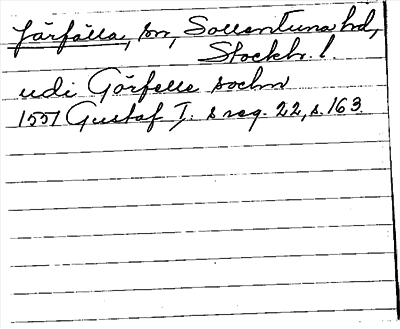 Järfälla, sn, Sollentuna hd,
Stockh. l.
udi Görfelle sochn
1551 Gustaf I:s reg. 22, s. 163.